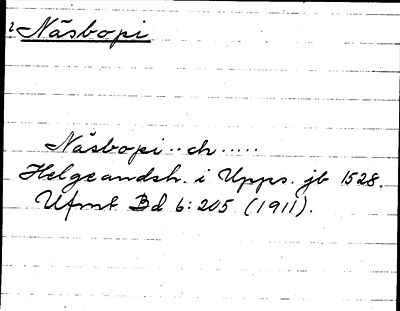 2 Näsbopi
Näsbopi..ch.....
Helgeandsh. i Upps. jb 1528.
Ufmt Bd 6:205 (1911).